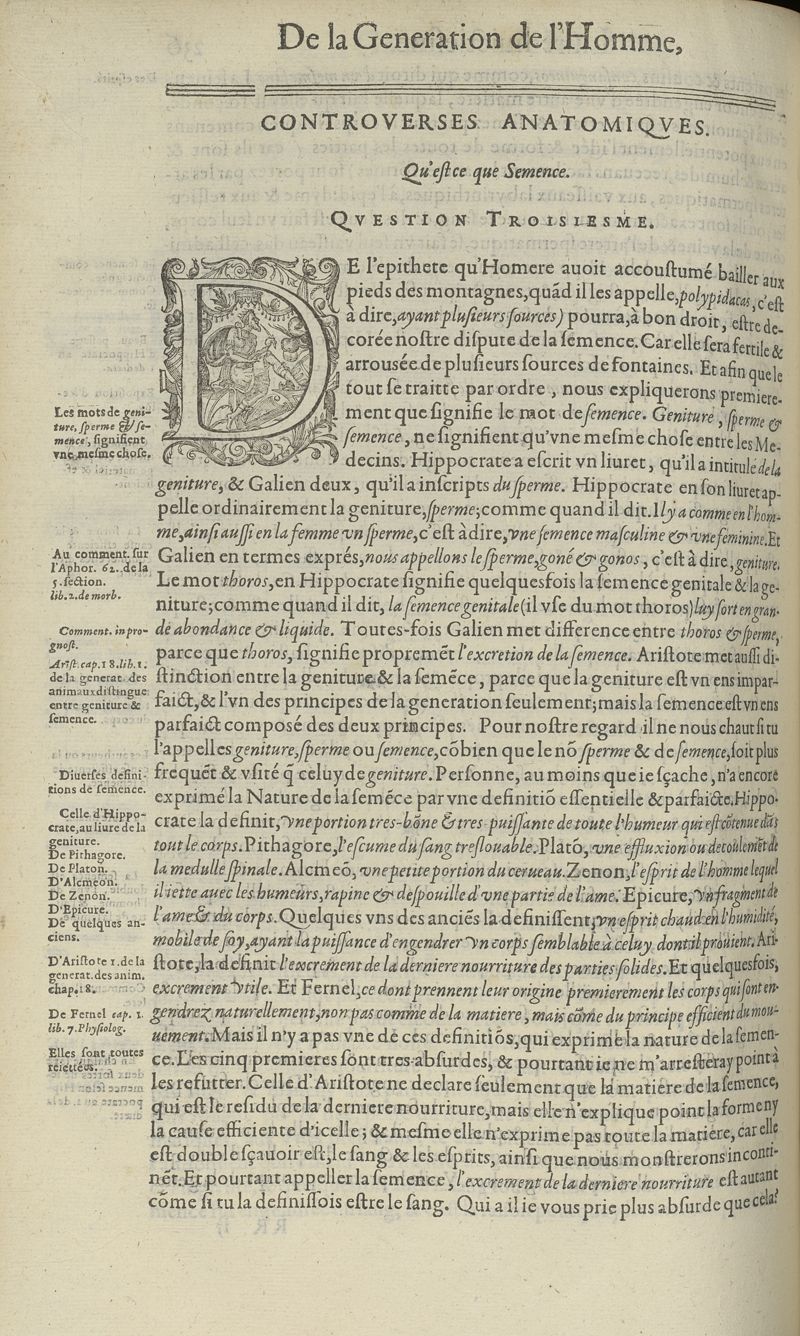 De la Generation de l'Homme,
CONTROVERSES ANATOMIQVES.
Qu'eſt ce que Semence.
QVESTION TROISIESME.
DE l'epithete qu'Homere auoit accouſtumé bailler aux
pieds des montagnes, quãd il les appelle, polypidacas, c'eſt
à dire, ayant pluſieurs ſources) pourra, à bon droit, eſtre de-
corée noſtre diſpute de la ſemence. Car elle ſera fertile &
arrousée de pluſieurs ſources de fontaines. Et afin que le
tout ſe traitte par ordre, nous expliquerons premiere-
ment que ſignifie le mot de ſemence. Geniture, ſperme &
ſemence, ne ſignifient qu'vne meſme choſe entre les Me-
decins. Hippocrate a eſcrit vn liuret, qu'il a intitulé de la
geniture, & Galien deux, qu'il a inſcripts du ſperme. Hippocrate en ſon liuret ap-
pelle ordinairement la geniture, ſperme; comme quand il dit. Il y a comme en l'hom-
me, ainſi auſſi en la femme vn ſperme, c'eſt à dire, vne ſemence maſculine & vne feminine. Et
Galien en termes exprés, nous appellons le ſperme, goné & gonos, c'eſt à dire, geniture.
Le mot thoros, en Hippocrate ſignifie quelquesfois la ſemence genitale & la ge-
niture; comme quand il dit, la ſemence genitale (il vſe du mot thoros) luy ſort en gran-
de abondance & liquide. Toutes-fois Galien met difference entre thoros & ſperme,
parce que thoros, ſignifie propremẽt l'excretion de la ſemence. Ariſtote met auſſi di-
ſtinction entre la geniture & la ſemẽce, parce que la geniture eſt vn ens impar-
faict, & l'vn des principes de la generation ſeulement; mais la ſemence eſt vn ens
parfaict composé des deux principes. Pour noſtre regard il ne nous chaut ſi tu
l'appelles geniture, ſperme ou ſemence, cõbien que le nõ ſperme & de ſemence, ſoit plus
frequẽt & vſité q̃ celuy de geniture. Perſonne, au moins que ie ſçache, n'a encore
exprimé la Nature de la ſemẽce par vne definitiõ eſſentielle & parfaicte. Hippo-
crate la definit, vne portion tres-bõne & tres-puiſſante de toute l'humeur qui eſt cõtenue dãs
tout le corps. Pithagore, l'eſcume du ſang treſlouable. Platõ, vne effluxion ou decoulemẽt de
la medulle ſpinale. Alcmeõ, vne petite portion du cerueau. Zenon, l'eſprit de l'homme lequel
il iette auec les humeurs, rapine & deſpouille d'vne partie de l'ame. Epicure, vn fragment de
l'ame & du corps. Quelques vns des anciẽs la definiſſent, vn eſprit chaud en l'humidité,
mobile de ſoy, ayant la puiſſance d'engendrer vn corps ſemblable à celuy dont il prouient. Ari-
ſtote, la definit l'excrement de la derniere nourriture des parties ſolides. Et quelquesfois,
excrement vtile. Et Fernel, ce dont prennent leur origine premierement les corps qui ſont en-
gendrez naturellement, non pas comme de la matiere, mais cõme du principe efficient du mou-
uement. Mais il n'y a pas vne de ces definitiõs, qui exprime la nature de la ſemen-
ce. Les cinq premieres ſont tres-abſurdes, & pourtant ie ne m'arreſteray point à
les refutter. Celle d'Ariſtote ne declare ſeulement que la matiere de la ſemence,
qui eſt le reſidu de la derniere nourriture, mais elle n'explique point la forme ny
la cauſe efficiente d'icelle; & meſme elle n'exprime pas toute la matiere, car elle
eſt double ſçauoir eſt, le ſang & les eſprits, ainſi que nous monſtrerons inconti-
nẽt. Et pourtant appeller la ſemence, l'excrement de la derniere nourriture eſt autant
cõme ſi tu la definiſſois eſtre le ſang. Qui a il ie vous prie plus abſurde que cela?
Les mots de geni-
ture, ſperme & ſe-
mence, ſignifient
vne meſme choſe.
Au comment. ſur
l'Aphor. 62. de la
5. ſection.
lib. 2. de morb.
Comment. in pro-
gnoſt.
Ariſt. cap. 18. lib. 1.
de la generat. des
animaux diſtingue
entre geniture &
ſemence.
Diuerſes defini-
tions de ſemence.
Celle d'Hippo-
crate, au liure de la
geniture.
De Pithagore.
De Platon.
D'Alcmeon.
De Zenon.
D'Epicure.
De quelques an-
ciens.
D'Ariſtote 1. de la
generat. des anim.
chap. 18.
De Fernel cap. 1.
lib. 7. Phyſiolog.
Elles ſont toutes
reiettées.